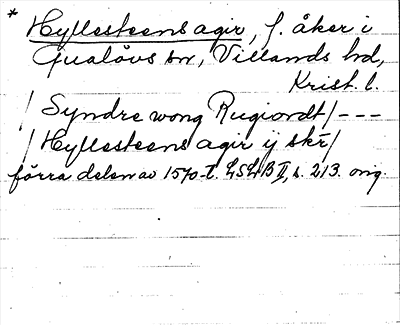 * Hyllesteens agir, f. åker i
Gualövs sn, Villands hd,
Krist. l.
/ Syndre wong Rugiordt / - - -
/ Hyllesteens agir ij skr /
förra delen av 1570-t. LSLB II, s. 213. orig.